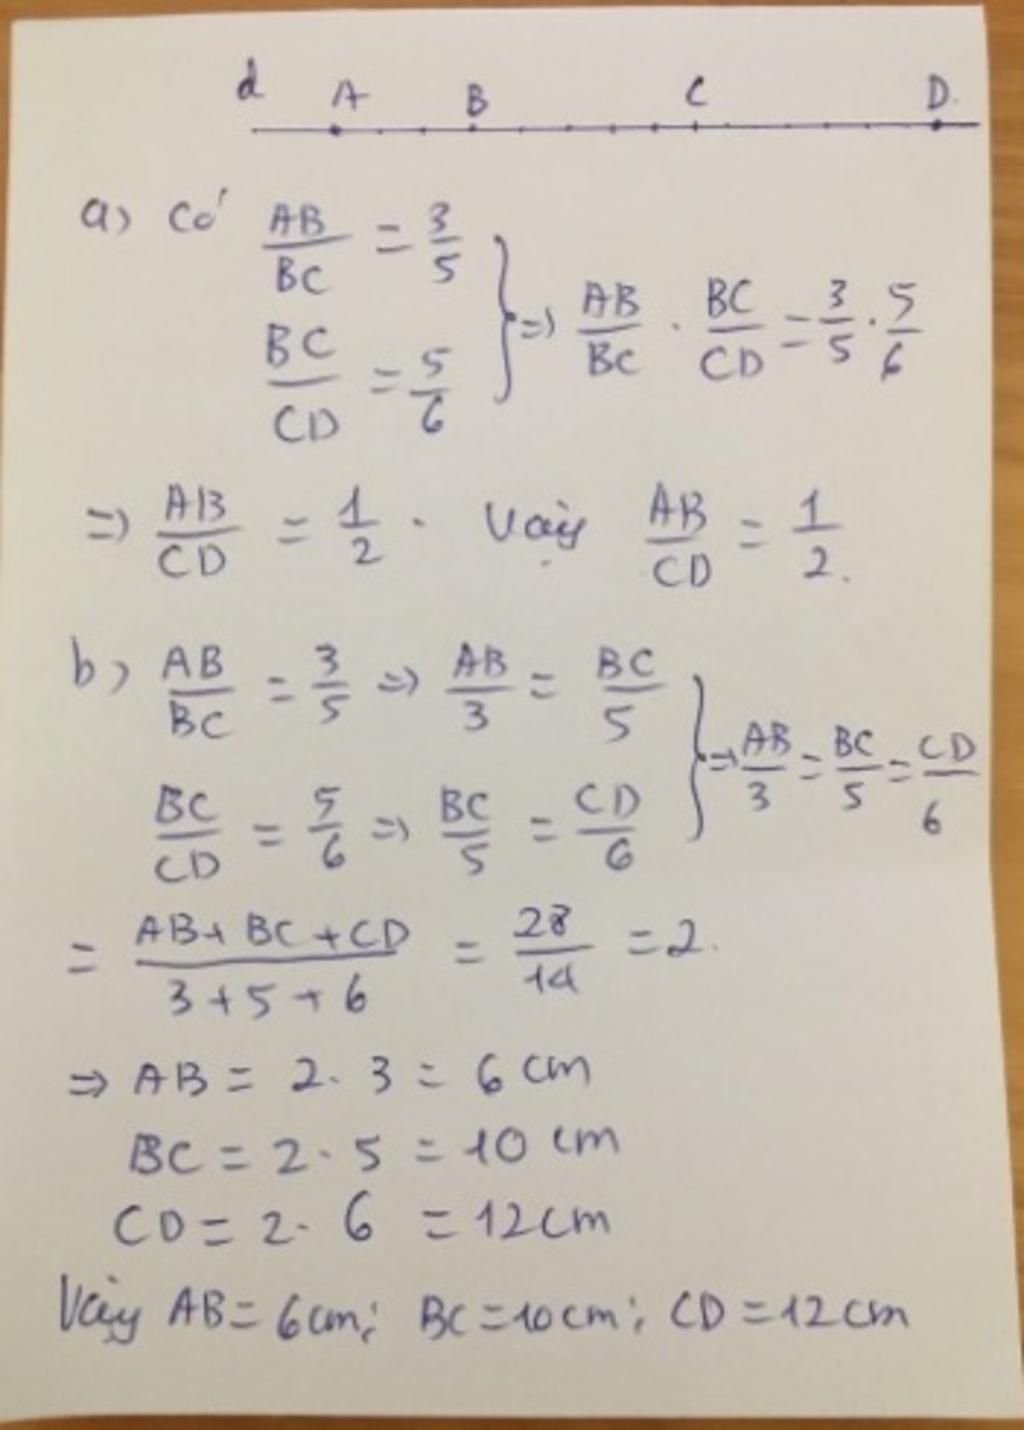 d A B C D.
a) Có AB/BC = 3/5
BC/CD = 5/6 } => AB/BC . BC/CD = 3/5 . 5/6
=> AB/CD = 1/2 . Vậy AB/CD = 1/2.
b) AB/BC = 3/5 => AB/3 = BC/5
BC/CD = 5/6 => BC/5 = CD/6 } => AB/3 = BC/5 = CD/6
= AB + BC + CD / 3 + 5 + 6 = 28/14 = 2.
=> AB = 2 . 3 = 6 cm
BC = 2 . 5 = 10 cm
CD = 2 . 6 = 12 cm
Vậy AB = 6 cm; BC = 10 cm; CD = 12 cm